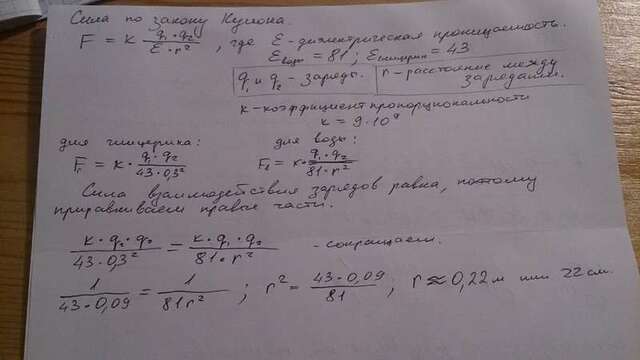 Сила по закону Кулона.
F = k q₁·q₂ / ε·r² , где ε - диэлектрическая проницаемость.
ε воды = 81 ; ε глицерин = 43
q₁ и q₂ - заряды. r - расстояние между
зарядами.
k - коэффициент пропорциональности
k = 9·10⁹
для глицерина: для воды:
F₁ = k · q₁·q₂ / 43·0,3² F₂ = k · q₁·q₂ / 81·r²
Сила взаимодействия зарядов равна, поэтому
приравниваем правые части.
k·q₁·q₂ / 43·0,3² = k·q₁·q₂ / 81·r² - сокращаем.
1 / 43·0,09 = 1 / 81r² ; r² = 43·0,09 / 81 ; r ≈ 0,22 м или 22 см.